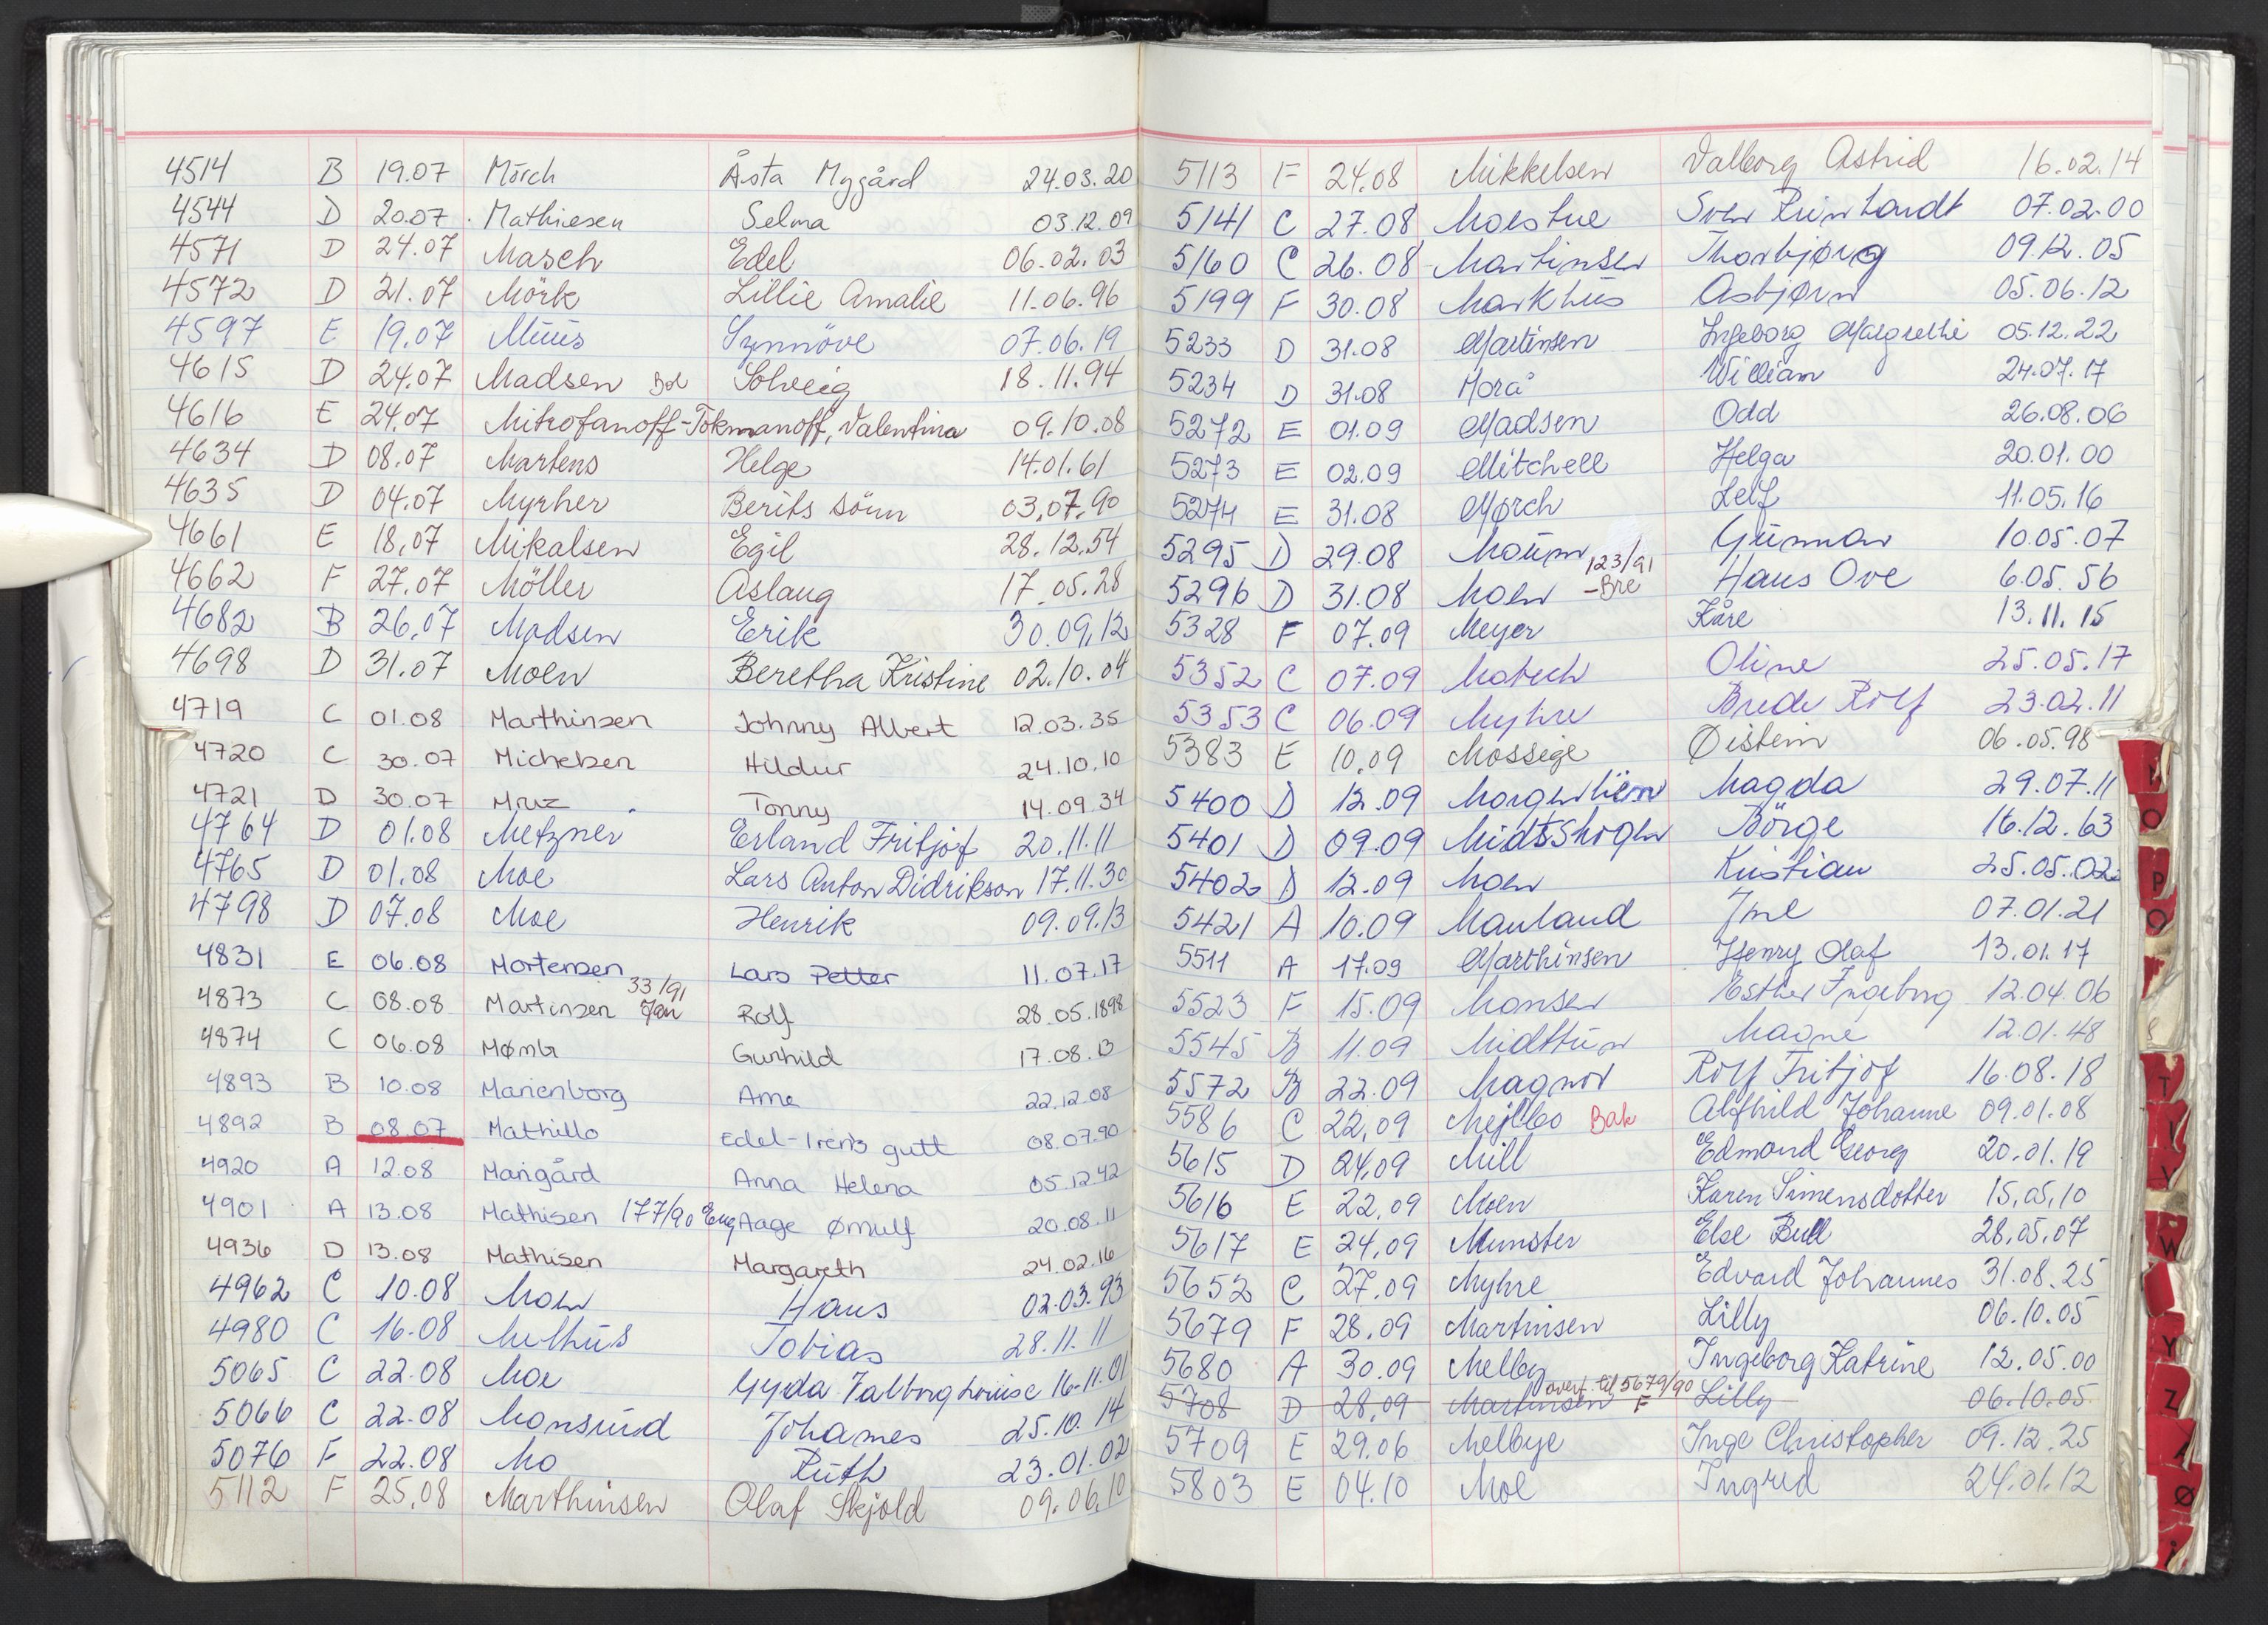 4514 B 19.07 Mörch Åsta Mygård 24.03.20
4544 D 20.07 Mathiesen Selma 03.12.09
4571 D 24.07 Masch Edel 06.02.03
4572 D 21.07 Mörk Lillie Amalie 11.06.96
4597 E 19.07 Müüs Synnöve 07.06.19
4615 D 24.07 Madsen Bol Solveig 18.11.94
4616 E 24.07 Mitrofanoff-Tokmanoff, Valentina 09.10.08
4634 D 08.07 Martens Helge 14.01.61
4635 D 04.07 Myrher Berits sönn 03.07.90
4661 E 18.07 Mikalsen Egil 28.12.54
4662 F 27.07 Möller Aslaug 17.05.28
4682 B 26.07 Madsen Erik 30.09.12
4698 D 31.07 Moen Beretha Kristine 02.10.04
4719 C 01.08 Marthinsen Johnny Albert 12.03.35
4720 C 30.07 Michelsen Hildur 24.10.10
4721 D 30.07 Mruz Tonny 14.09.34
4764 D 01.08 Metzner Erland Fritjof 20.11.11
4765 D 01.08 Moe Lars Anton Didrikson 17.11.30
4798 D 07.08 Moe Henrik 09.09.13
4831 E 06.08 Mortensen Lars Petter 11.07.17
4873 C 08.08 Martinsen 33/91 Jan Rolf 28.05.1898
4874 C 06.08 Mømb Gunhild 17.08.13
4893 B 10.08 Marienborg Arne 22.12.08
4892 B 08.07 Mathillo Edel-Irens gutt 08.07.90
4920 A 12.08 Marigård Anna Helena 05.12.42
4901 A 13.08 Mathisen 177/90 Eug Aage Ørnulf 20.08.11
4936 D 13.08 Mathisen Margareth 24.02.16
4962 C 10.08 Moen Hans 02.03.93
4980 C 16.08 Melhus Tobias 28.11.11
5065 C 22.08 Moe Gyda Valborg Louise 16.11.01
5066 C 22.08 Monsrud Johannes 25.10.14
5076 F 22.08 Mo Ruth 23.01.02
5112 F 25.08 Marthinsen Olaf Skjold 09.06.10
5113 F 24.08 Mikkelsen Valborg Astrid 16.02.14
5141 C 27.08 Moestue Sven Reinhardt 07.02.00
5160 C 26.08 Martinsen Thorbjørg 09.12.05
5199 F 30.08 Markhus Asbjørn 05.06.12
5233 D 31.08 Martinsen Ingeborg Margrethe 05.12.22
5234 D 31.08 Morå William 24.07.17
5272 E 01.09 Madsen Odd 26.08.06
5273 E 02.09 Mitchell Helga 20.01.00
5274 E 31.08 Mørch Leif 11.05.16
5295 D 29.08 Moum Gunnar 10.05.07
5296 D 31.08 Moen 123/91 -Bre Hans Ove 6.05.56
5328 F 07.09 Meyer Kåre 13.11.15
5352 C 07.09 Motech Oline 25.05.17
5353 C 06.09 Myhre Brede Rolf 23.02.11
5383 E 10.09 Mossige Øistein 06.05.98
5400 D 12.09 Morgenstiern Magda 29.07.11
5401 D 09.09 Midtskogen Börge 16.12.63
5402 D 12.09 Moen Kristian 25.05.02
5421 A 10.09 Mauland Jne 07.01.21
5511 A 17.09 Marthinsen Henry Olaf 13.01.17
5523 F 15.09 Monsen Esther Ingeborg 12.04.06
5545 B 11.09 Midttun Magne 12.01.48
5572 B 22.09 Magnor Rolf Fritjof 16.08.18
5586 C 22.09 Mejlbo Bak Alfhild Johanne 09.01.08
5615 D 24.09 Mill Edmond Georg 20.01.19
5616 E 22.09 Moen Karen Simensdotter 15.05.10
5617 E 24.09 Munster Else Bull 28.05.07
5652 C 27.09 Myhre Edvard Johannes 31.08.25
5679 F 28.09 Martinsen Lilly 06.10.05
5680 A 30.09 Melby Ingeborg Katrine 12.05.00
5708 D 28.09 Martinsen overf. til 5679/90 F Lilly 06.10.05
5709 E 29.06 Melbye Inge Christopher 09.12.25
5803 E 04.10 Moe Ingrid 24.01.12
O
P
Q
T
Y
W
Y
Z
Ø